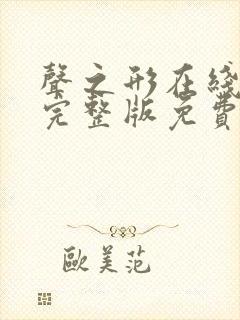 聲之形在綫
完整版免費
歐美范